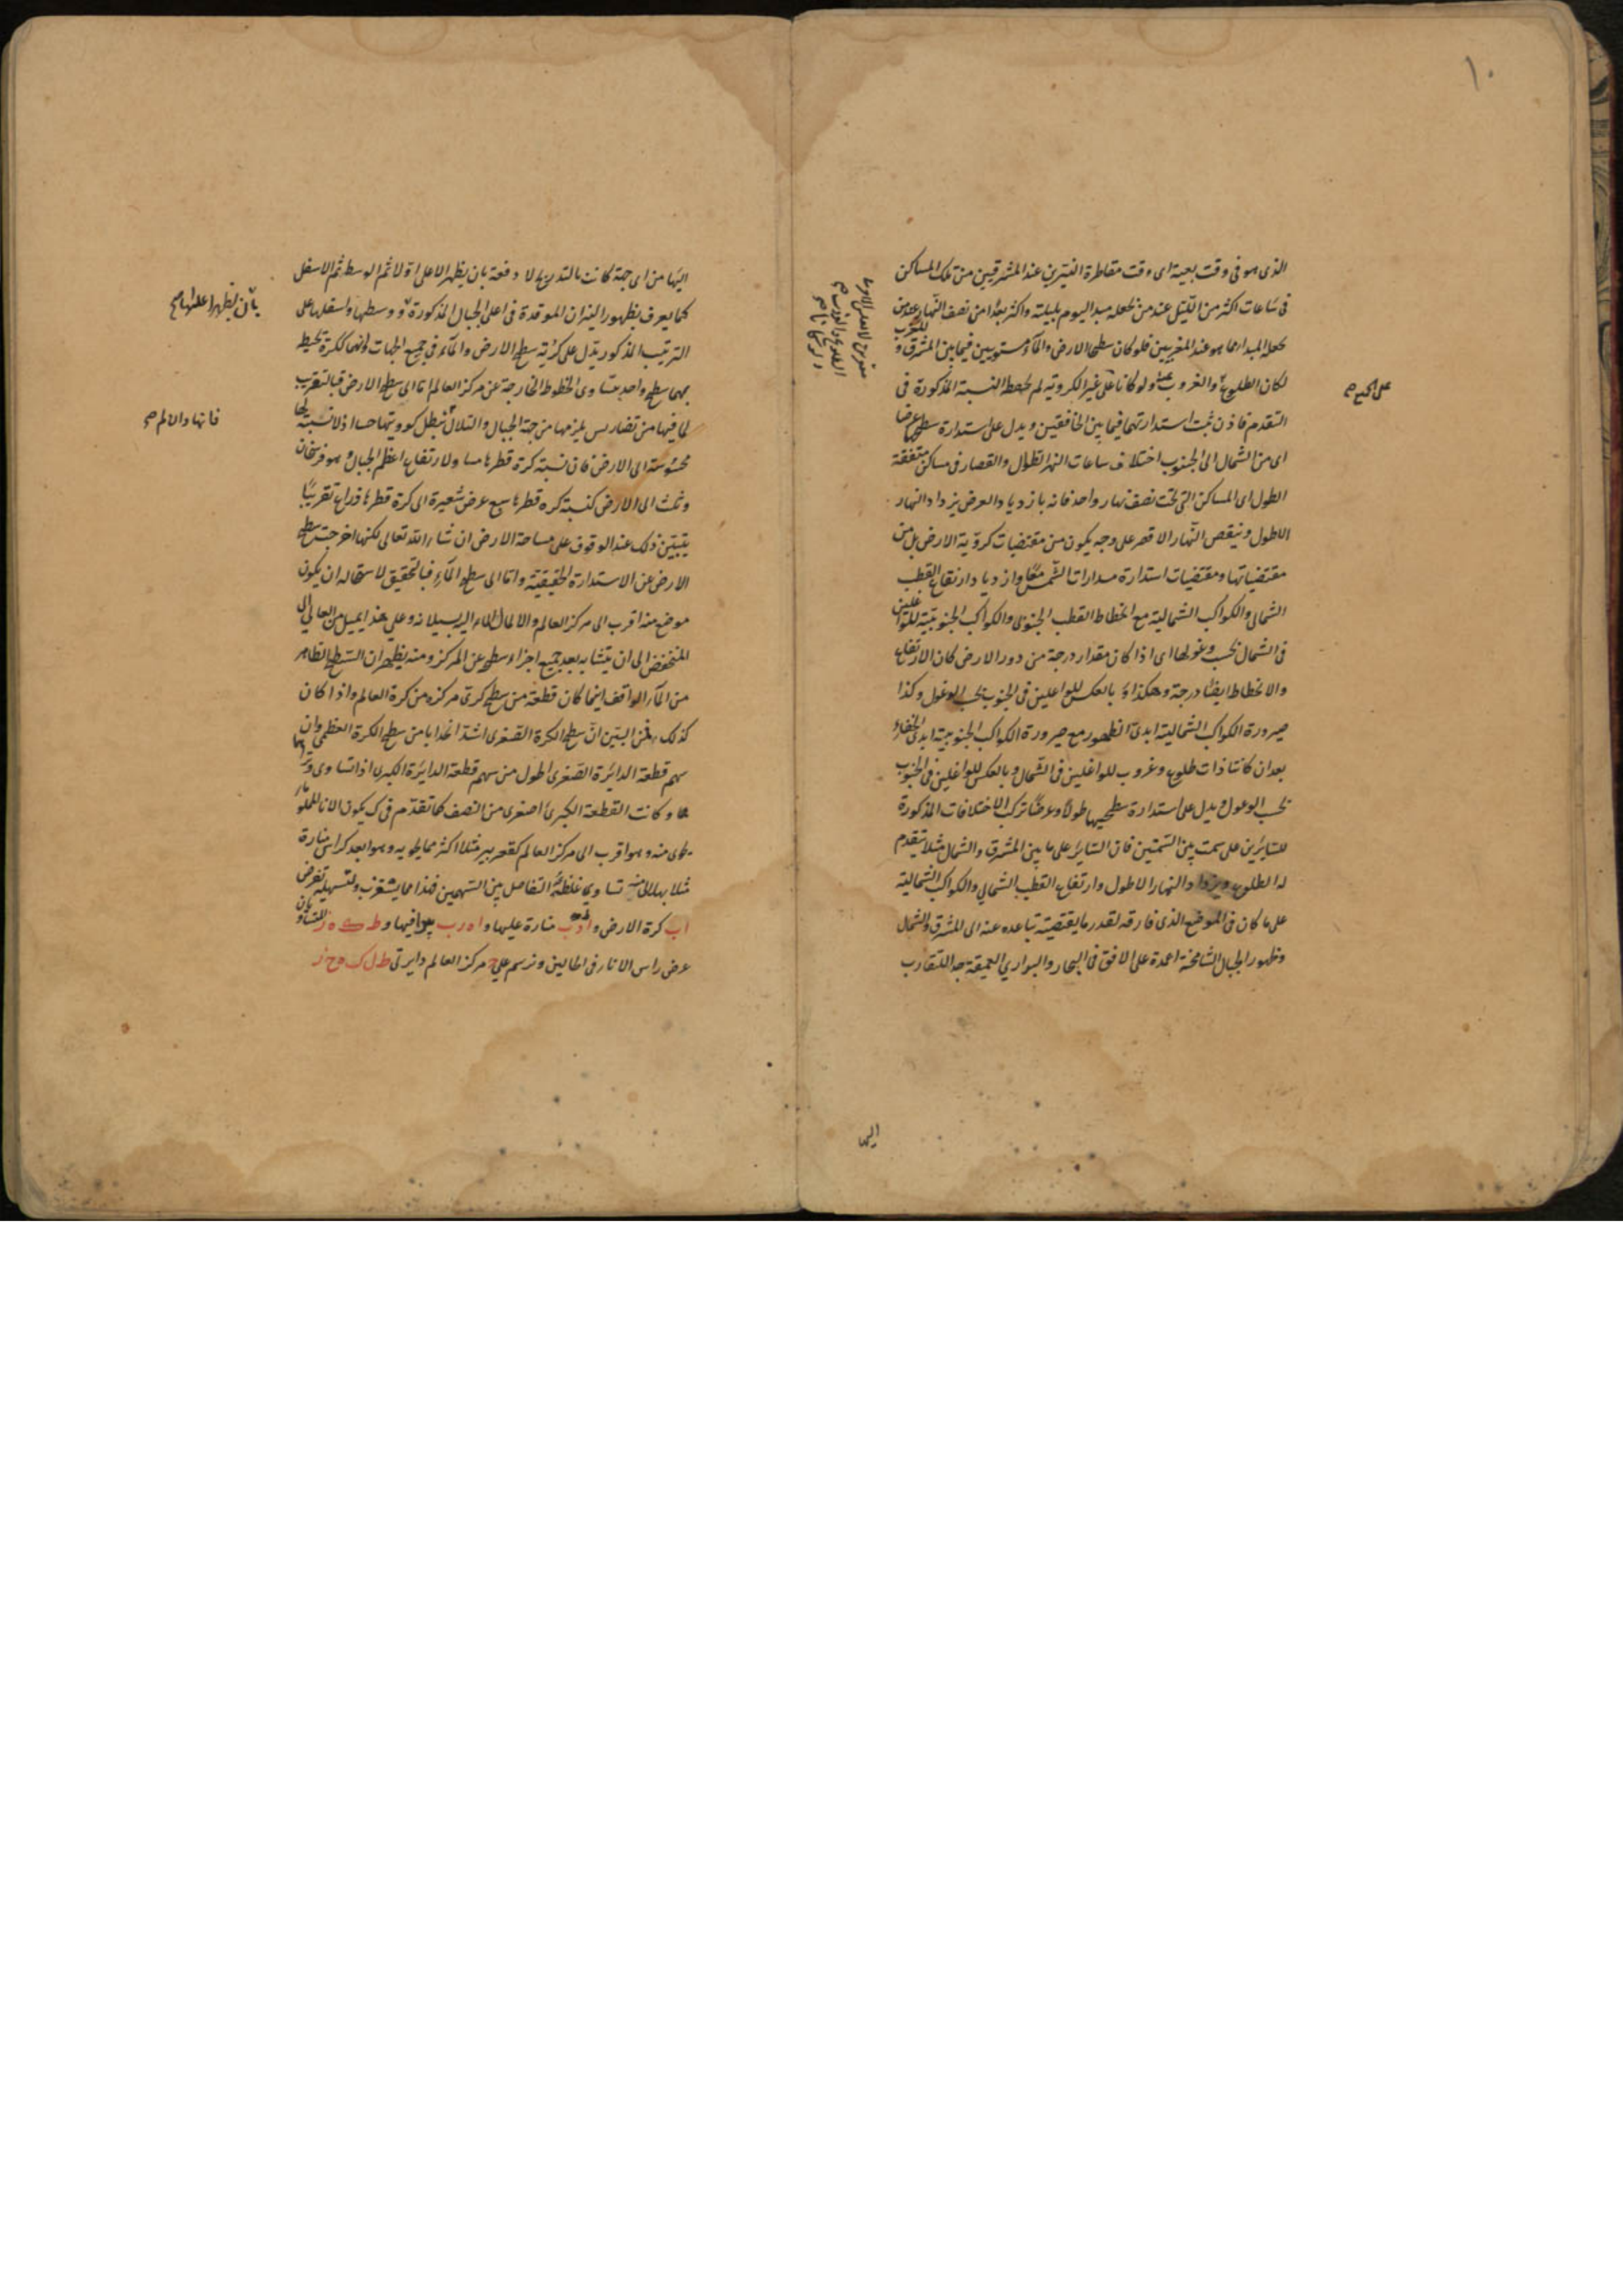 ١٠
الذى هو فى وقت بعينه اى وقت مقاطرة النيرين عند المشرقيين من تلك المساكن
فى ساعات اكثر من الليل عند من نجعله مبدا اليوم بليلته واكثر بعدا من نصف النهار عند من
نجعله المبدا مما هو عند المغربيين فلو كان سطحا الارض والماء مستويين فيما بين المشرق و
المغرب
لكان الطلوع والغروب ولو كانا على غير الكروية لم تحفظ النسبة المذكورة فى
التقدم فاذن ثبت استدارتهما فيما بين الخافقين ويدل على استدارة سطحيهما عرضا
اى من الشمال الى الجنوب اختلاف ساعات النهر الطوال والقصار فى مساكن متفقة
الطول اى المساكن التى تحت نصف نهار واحد فانه بازدياد العرض يزداد النهار
الاطول وينقص النهار الاقصر على وجه يكون من مقتضيات كروية الارض بل من
مقتضياتها ومقتضيات استدارة مدارات الشمس معا وازدياد ارتفاع القطب
الشمالى والكواكب الشمالية مع انحطاط القطب الجنوبى والكواكب الجنوبية للواغلين
فى الشمال بحسب وغولها اى اذا كان مقدار درجة من دور الارض كان الارتفاع
والانحطاط ايضا درجة وهكذا و بالعكس للواغلين فى الجنوب بحسب الوغول وكذا
صيرورة الكواكب الشمالية ابدى الظهور مع صيرورة الكواكب الجنوبية ابدى الخفاء
بعد ان كانتا ذات طلوع وغروب للواغلين فى الشمال وبالعكس للواغلين فى الجنوب
بحسب الوغول ويدل على استدارة سطحيهما طولا وعرضا تركب الاختلافات المذكورة
للسائرين على سمت بين السمتين فان السائر على ما بين المشرق والشمال مثلا يتقدم
له الطلوع ويزداد النهار الاطول وارتفاع القطب الشمالى والكواكب الشمالية
على ما كان فى الموضع الذى فارقه لقدر ما يقتضيه تباعده عنه الى المشرق والشمال
وظهور الجبال الشامخة اعمدة على الافق فى البحار والبوارى العميقة جدا لتقارب
اليها
اليها من اى جهة كانت بالتدريج لا دفعة بان يظهر الاعلى اولا ثم الوسط ثم الاسفل
كما يعرف بظهور النيران الموقدة فى اعلى الجبال المذكورة ووسطها واسفلها على
بان يظهر اعلاها
الترتيب المذكور يدل على كرية سطح الارض والماء فى جميع الجهات وانهما ككرة تحيط
بهما سطح واحد يتساوى الخطوط الخارجة عن مركز العالم اما الى سطح الارض فبالتقريب
لما فيها من تضاريس يلزمها من جهة الجبال والتلال
محسوسة الى الارض فان نسبة كرة قطرها مساو لارتفاع اعظم الجبال وهو فرسخان
وثلث الى الارض كنسبة كره قطرها سبع عرض شعيرة الى كرة قطرها ذراع تقريبا
يتبين ذلك عند الوقوف على مساحة الارض ان شاء الله تعالى لكنها اخرجت سطح
الارض عن الاستدارة الحقيقية واما الى سطح الماء فبالتحقيق لاستحاله ان يكون
موضع منه اقرب الى مركز العالم والا لمال الماء اليه بسيلانه وعلى هذا يميل من العالى الى
المنخفض الى ان يتشابه بعد جميع اجزاء سطحه عن المركز ومنه يظهر ان السطح الظاهر
من الماء الواقف اينما كان قطعة من سطح كرى مركزه من كرة العالم واذا كان
كذلك فمن البين ان سطح الكرة الصغرى اشد انحدابا من سطح الكرة العظمى وان
سهم قطعة الدائرة الصغرى اطول من سهم قطعة الدائرة الكبرى اذا تساوى وتراهما
وكانت القطعة الكبرى اصغرى من النصف كما تقدم فى ك يكون الاناء المملو
منه وهو اقرب الى مركز العالم كقعر بير مثلا اكثر مما يحويه وهو ابعد كراس منارة
مثلا تساوى التفاضل بين السهمين فهذا مما يستغرب ولتسهيله نفرض
اب كرة الارض و منارة عليها و ا ه ر ب بيرا فيها و ط ى ه ز
عرض راس الاناء فى الحالين ونرسم على ح مركز العالم دايرتى ط ل ك و ح ز